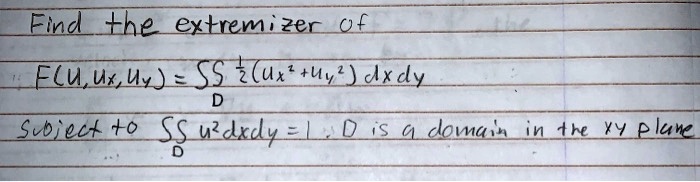 Find the extremizer of
F(u, ux, uy) = SS 1/2 (ux² + uy²) dxdy
D
Subject to SS u² dxdy = 1. D is a domain in the xy plane
D